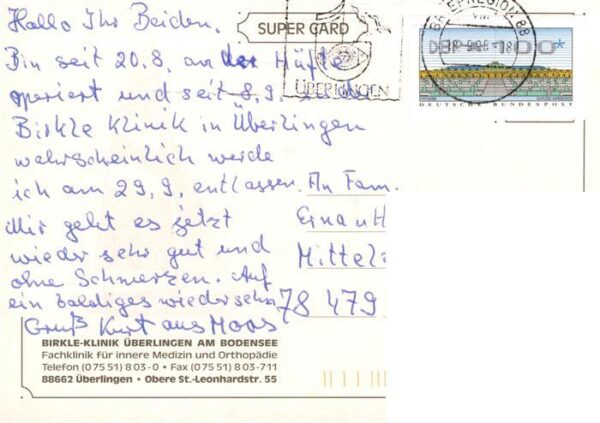 Hallo Ihr Beiden.
SUPER CARD
Bin seit 20.8. an der Hüfte
operiert und seit 8.9. in der
Birkle Klinik in Überlingen
wahrscheinlich werde
ich am 29.9. entlassen.
Mir geht es jetzt
wieder sehr gut und
ohne Schmerzen. Auf
ein baldiges wiedersehn
Gruß Kurt aus Moos
BRIEFREGION 88
ÜBERLINGEN
DEUTSCHE BUNDESPOST
An Fam.
Erna u H
Mittelz
78 479
BIRKLE-KLINIK ÜBERLINGEN AM BODENSEE
Fachklinik für innere Medizin und Orthopädie
Telefon (0 75 51) 8 03-0 • Fax (0 75 51) 8 03-711
88662 Überlingen • Obere St.-Leonhardstr. 55